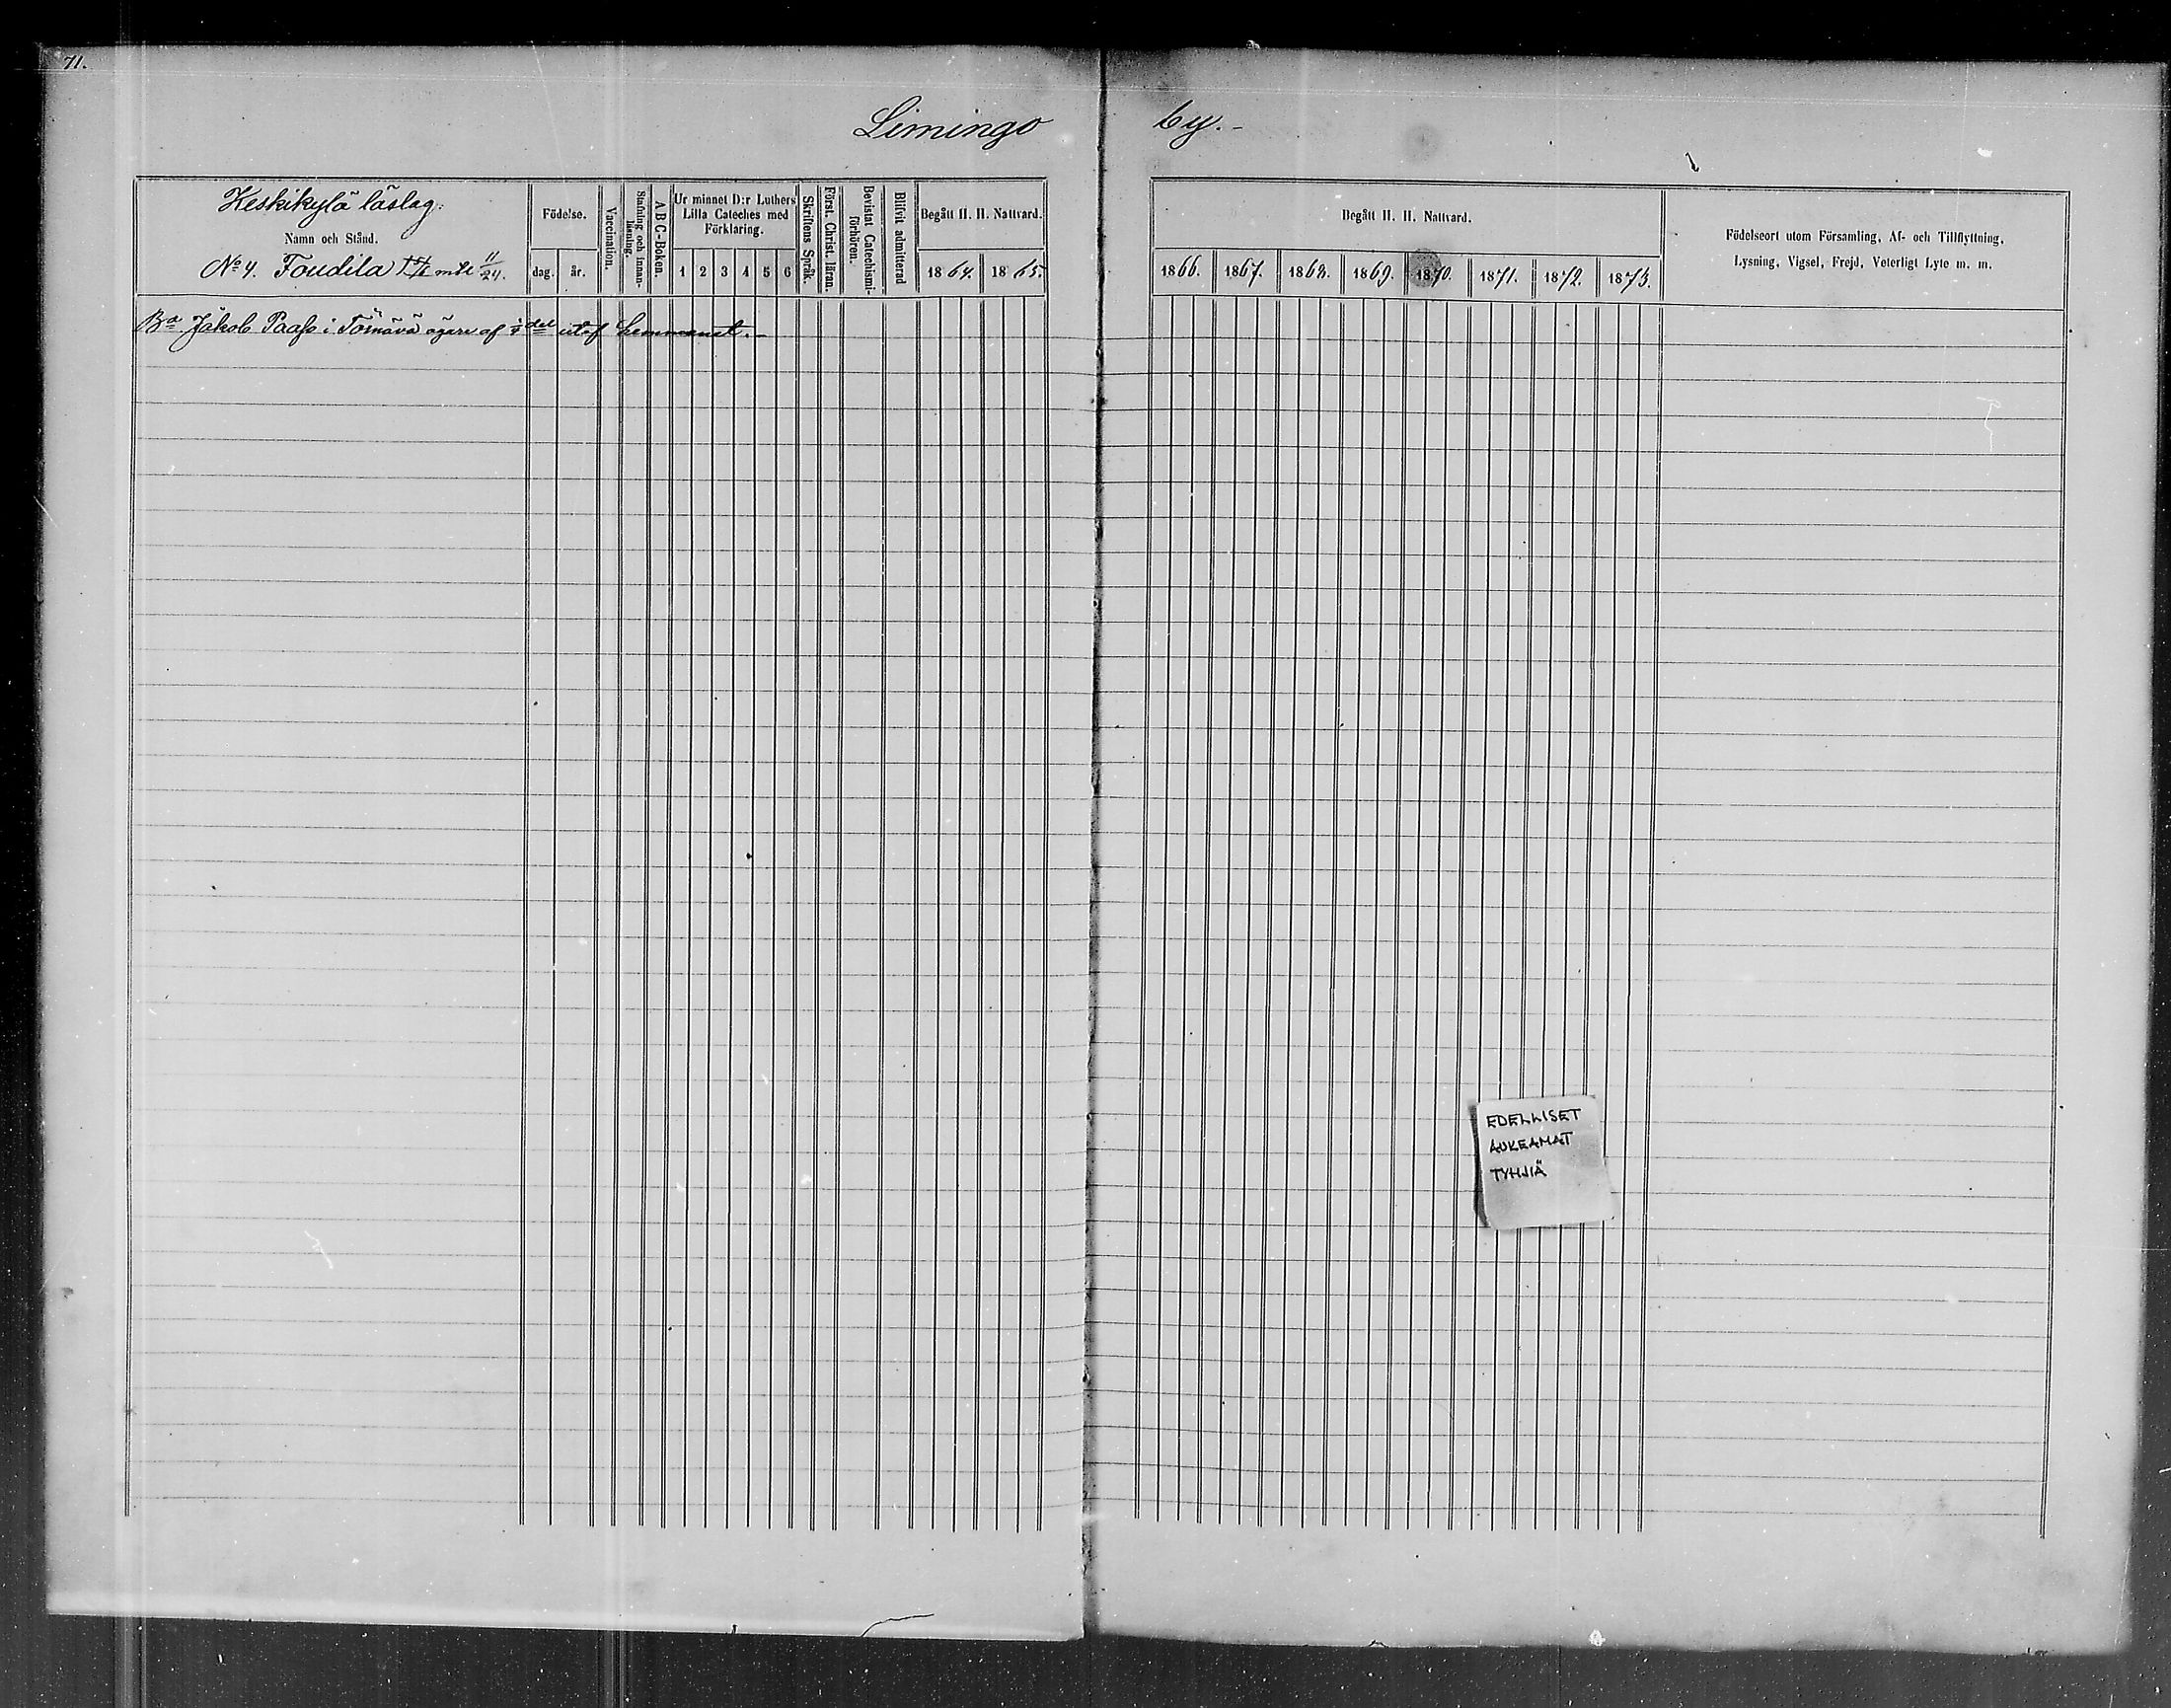 71.
Limingo by.-
Keskikylä läslag.
Namn och Stånd.
No 4. Toudila mtl 11/24.
Födelse.
dag. år.
Vaccination.
Stafning och innanläsning.
A B C-Boken.
Ur minnet D:r Luthers Lilla Cateches med Förklaring.
1 2 3 4 5 6
Skriftens Språk.
Först. Christ. läran.
Bevistat Catechismiförhören.
Blifvit admitterad
Begått H. H. Nattvard.
1864. 1865.
Begått H. H. Nattvard.
1866. 1867. 1868. 1869. 1870. 1871. 1872. 1873.
Födelseort utom Församling, Af- och Tillflyttning,
Lysning, Vigsel, Frejd, Veterligt Lyte m. m.
Ba Jakob Paaso i Tömävä ägare af del utaf hemmanet.-
EDELLISET
AUKEAMAT
TYHJIÄ